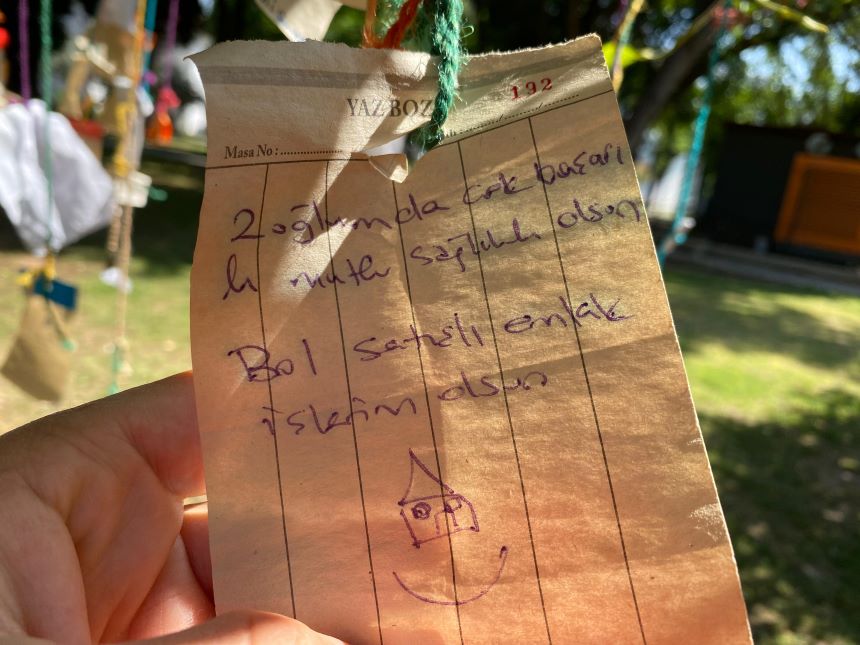 YAZ BOZ
192
Masa No :
2 oğlumda çok başarı
lı mutlu sağlıklı olsun
Bol satışlı emlak
işlerim olsun